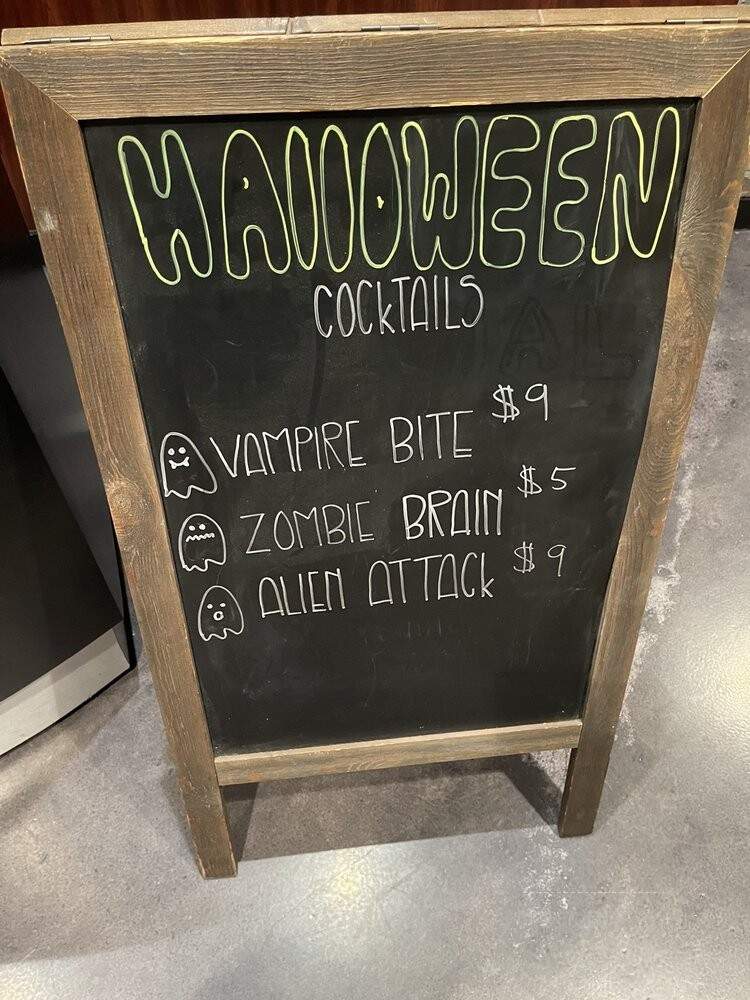 HALLOWEEN
COCKTAILS
VAMPIRE BITE $9
ZOMBIE BRAIN $5
ALIEN ATTACK $9